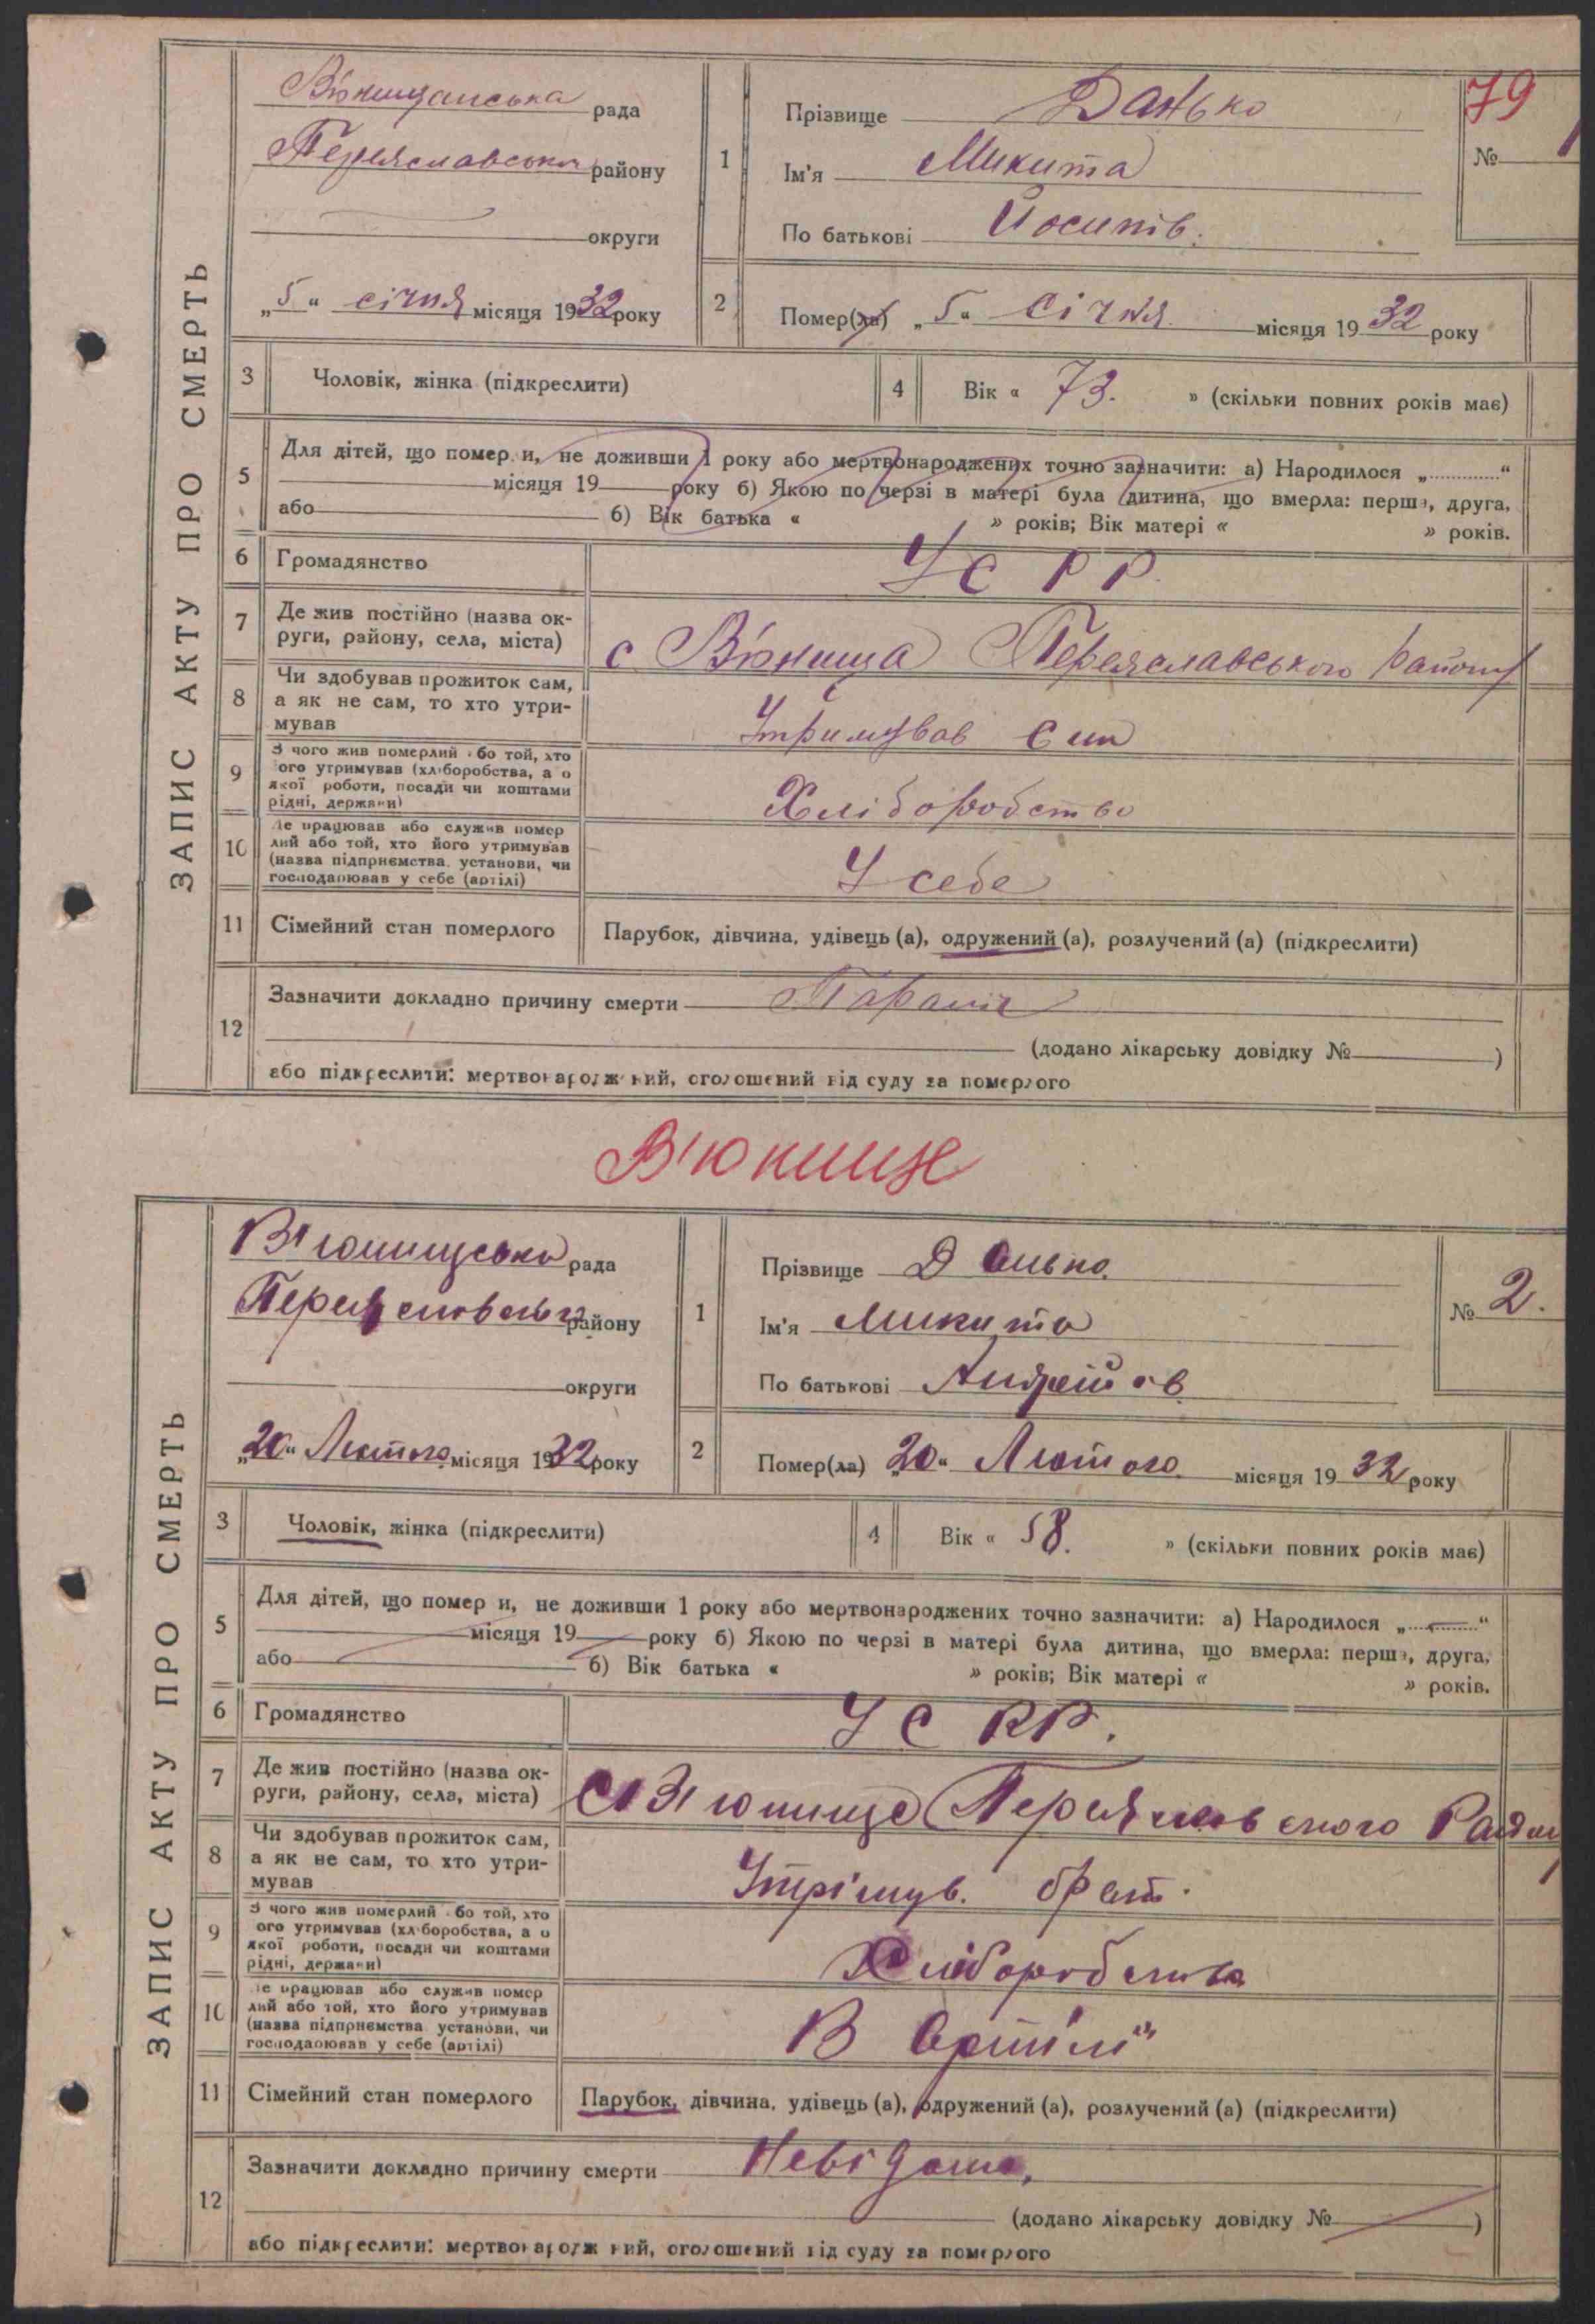 ЗАПИС АКТУ ПРО СМЕРТЬ
В'юнищанська рада
Переяславськ району
округи
„5“ січня місяця 1932 року
1
Прізвище Данько
Ім'я Микита
По батькові Йосипів.
79
№ 1
2
Помер(ла) „5“ Січня місяця 1932 року
3
Чоловік, жінка (підкреслити)
4
Вік « 73. » (скільки повних років має)
5
Для дітей, що помер и, не доживши 1 року або мертвонароджених точно зазначити: а) Народилося „ “
місяця 19 року б) Якою по черзі в матері була дитина, що вмерла: перша, друга,
або б) Вік батька « » років; Вік матері « » років.
6
Громадянство
УСРР
7
Де жив постійно (назва ок-
руги, району, села, міста)
с В'юнища Переяславського району
8
Чи здобував прожиток сам,
а як не сам, то хто утри-
мував
Утримував Син
9
З чого жив померлий або той, хто
ого утримував (хліборобства, а о
якої роботи, посади чи коштами
рідні, держави)
Хліборобство
10
Де працював або служив помер
лий або той, хто його утримував
(назва підприємства, установи, чи
господарював у себе (артілі)
У себе
11
Сімейний стан померлого
Парубок, дівчина, удівець (а), одружений (а), розлучений (а) (підкреслити)
12
Зазначити докладно причину смерти Параліч
(додано лікарську довідку № )
або підкреслити: мертвонароджений, оголошений від суду за померлого
В'юнище
ЗАПИС АКТУ ПРО СМЕРТЬ
В'юнищська рада
Переяславськ району
округи
„20“ Лютого місяця 1932 року
1
Прізвище Данько.
Ім'я Микита
По батькові Андреїов
№ 2.
2
Помер(ла) „20“ Лютого місяця 1932 року
3
Чоловік, жінка (підкреслити)
4
Вік « 58. » (скільки повних років має)
5
Для дітей, що помер и, не доживши 1 року або мертвонароджених точно зазначити: а) Народилося „ “
місяця 19 року б) Якою по черзі в матері була дитина, що вмерла: перша, друга,
або б) Вік батька « » років; Вік матері « » років.
6
Громадянство
УСРР.
7
Де жив постійно (назва ок-
руги, району, села, міста)
С В'юнище Переяславского Район
8
Чи здобував прожиток сам,
а як не сам, то хто утри-
мував
Утрімув. брат.
9
З чого жив померлий або той, хто
ого утримував (хліборобства, а о
якої роботи, посади чи коштами
рідні, держави)
Хліборобства
10
Де працював або служив помер
лий або той, хто його утримував
(назва підприємства, установи, чи
господарював у себе (артілі)
В Артілі"
11
Сімейний стан померлого
Парубок, дівчина, удівець (а), одружений (а), розлучений (а) (підкреслити)
12
Зазначити докладно причину смерти Невідома,
(додано лікарську довідку № )
або підкреслити: мертвонароджений, оголошений від суду за померлого